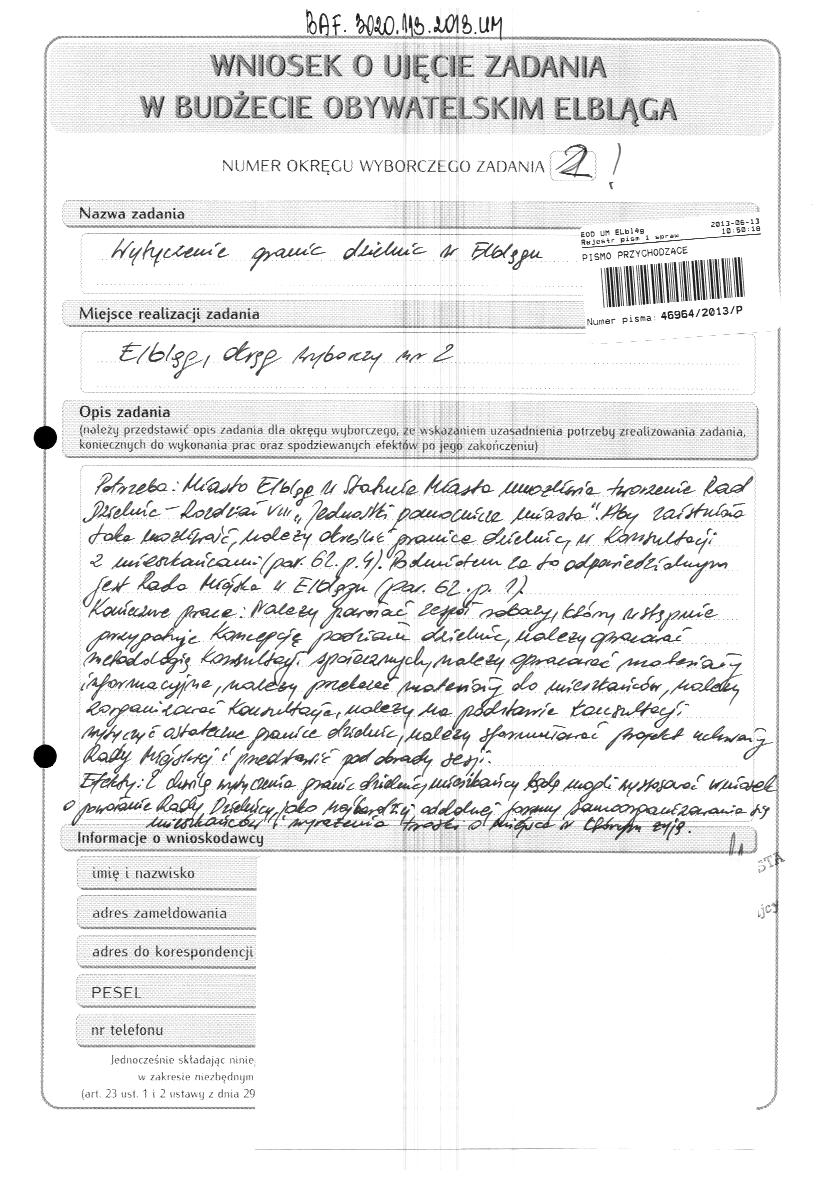 BAF. 3020.113.2013.UM
WNIOSEK O UJĘCIE ZADANIA
W BUDŻECIE OBYWATELSKIM ELBLĄGA
NUMER OKRĘGU WYBORCZEGO ZADANIA 2 !
Nazwa zadania
EOD UM Elbląg 2013-06-13
Rejestr pism i spraw 10:50:18
PISMO PRZYCHODZĄCE
Numer pisma: 46964/2013/P
Wytyczenie granic dzielnic w Elblągu
Miejsce realizacji zadania
Elbląg, okręg wyborczy nr 2
Opis zadania
(należy przedstawić opis zadania dla okręgu wyborczego, ze wskazaniem uzasadnienia potrzeby zrealizowania zadania,
koniecznych do wykonania prac oraz spodziewanych efektów po jego zakończeniu)
Potrzeba: Miasto Elbląg w Statucie Miasta umożliwia tworzenie Rad
Dzielnic – Rozdział VIII „Jednostki pomocnicze miasta". Aby zaistniała
taka możliwość, należy określić granice dzielnic, w konsultacji
z mieszkańcami (par. 62. p. 4). Podmiotem za to odpowiedzialnym
jest Rada Miejska w Elblągu (par. 62. p. 1).
Konieczne prace: Należy powołać zespół roboczy, który wstępnie
przygotuje koncepcję podziału dzielnic, należy opracować
metodologię konsultacji społecznych, należy opracować materiały
informacyjne, należy przekazać materiały do mieszkańców, należy
zorganizować konsultacje, należy na podstawie konsultacji
wytyczyć ostateczne granice dzielnic, należy sformułować projekt uchwały
Rady Miejskiej i przedstawić pod obrady sesji.
Efekty: Z chwilą wytyczenia granic dzielnic, mieszkańcy będą mogli wystosować wniosek
o powołanie Rady Dzielnicy, jako najbardziej oddolnej formy samoorganizowania się
mieszkańców i wyrażenia troski o miejsce w którym żyją.
Informacje o wnioskodawcy
imię i nazwisko
adres zameldowania
adres do korespondencji
PESEL
nr telefonu
Jednocześnie składając ninie
w zakresie niezbędnym
(art. 23 ust. 1 i 2 ustawy z dnia 29